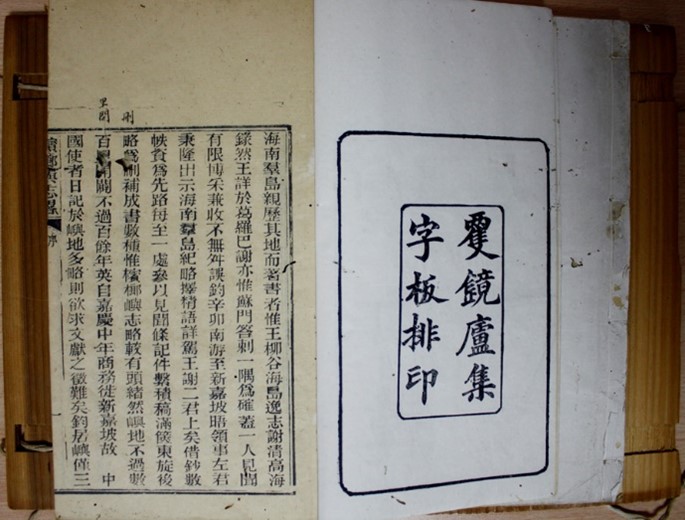 䨇鏡廬集
字板排印
里開
刪
海南羣島親歷其地而著書者惟王柳谷海島逸志謝清高海
錄然王詳於葛羅巴謝亦惟蘇門荅剌一隅爲確蓋一人見聞
有限博采兼收不無舛誤鈞辛卯南游至新嘉坡晤領事左君
秉隆出示海南羣島紀略擇精語詳駕王謝二君上矣借鈔數
帙賫爲先路每至一處參以見聞條記件繫積稿滿篋東旋後
略爲刪補成書數種惟檳榔嶼志略較有頭緒然嶼地不過數
百開闢不過百餘年英自嘉慶中年商務徙新嘉坡故 中
國使者日記於嶼地多略則欲求文獻之徵難矣鈞居嶼僅三
志略 序 一